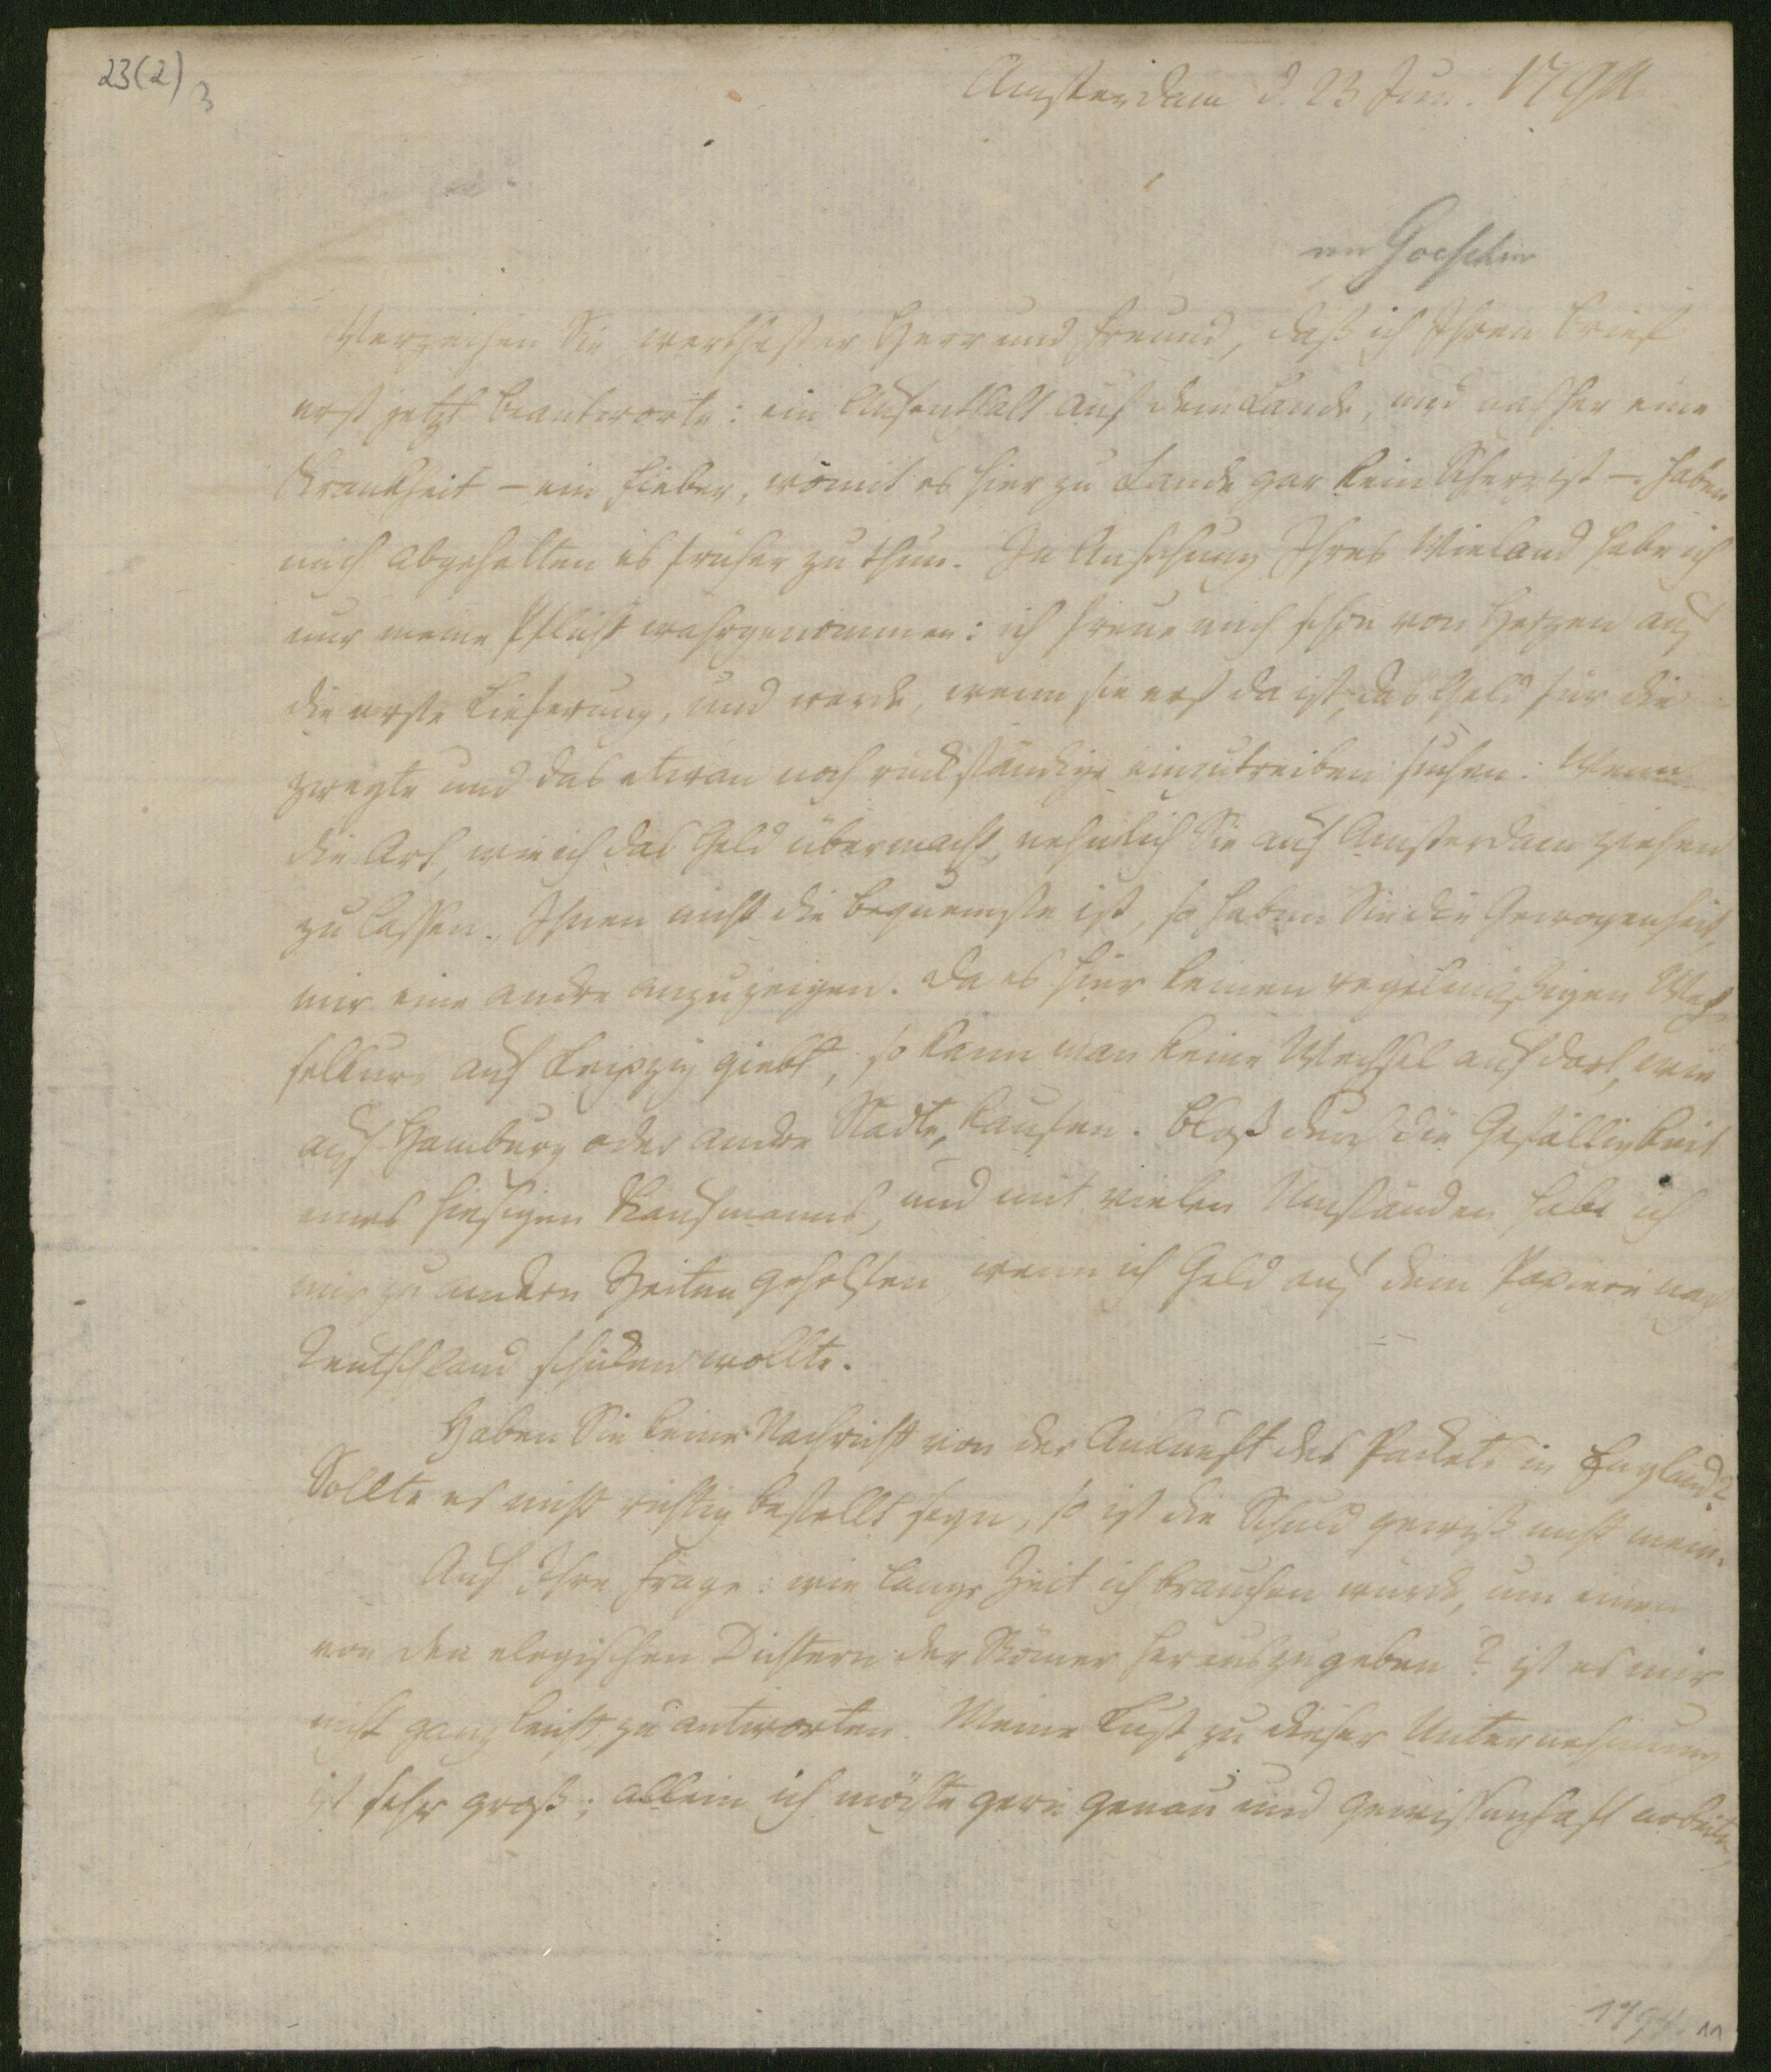 23(2)
3
Amsterdam d. 23 Jun. 1794
an Goeschen
Verzeihen Sie, werthester Herr und Freund, daß ich Ihren Brief
erst jetzt beantworte: ein Aufenthalt auf dem Lande, und nachher eine
Krankheit – ein Fieber, womit es hier zu Lande gar kein Scherz ist – haben
mich abgehalten es früher zu thun. In Ansehung Ihres Wieland habe ich
nur meine Pflicht wahrgenommen: ich freue mich schon von Herzen auf
die erste Lieferung, und werde, wenn sie erst da ist, das Geld für die
zweyte und das etwan noch rückständige einzutreiben suchen. Wenn
die Art, wie ich das Geld übermacht, nehmlich Sie auf Amsterdam ziehen
zu lassen, Ihnen nicht die bequemste ist, so haben Sie die Gewogenheit,
mir eine andre anzuzeigen. Da es hier keinen regelmäßigen Wech-
selkurs auf Leipzig giebt, so kann man keine Wechsel auf dort, wie
auf Hamburg oder andre Städte, kaufen. Bloß durch die Gefälligkeit
eines hiesigen Kaufmanns, und mit vielen Umständen habe ich
mir zu andern Zeiten geholfen, wenn ich Geld auf dem Papiere nach
Deutschland schicken wollte.
Haben Sie keine Nachricht von der Ankunft des Packets in England?
Sollte es nicht richtig bestellt seyn, so ist die Schuld gewiß nicht mein.
Auf Ihre Frage: wie lange Zeit ich brauchen würde, um einen
von den elegischen Dichtern der Römer herauszugeben? ist es mir
nicht ganz leicht, zu antworten. Meine Lust zu dieser Unternehmung
ist sehr groß; allein ich möchte gern genau und gewissenhaft arbeiten,
1794.
11